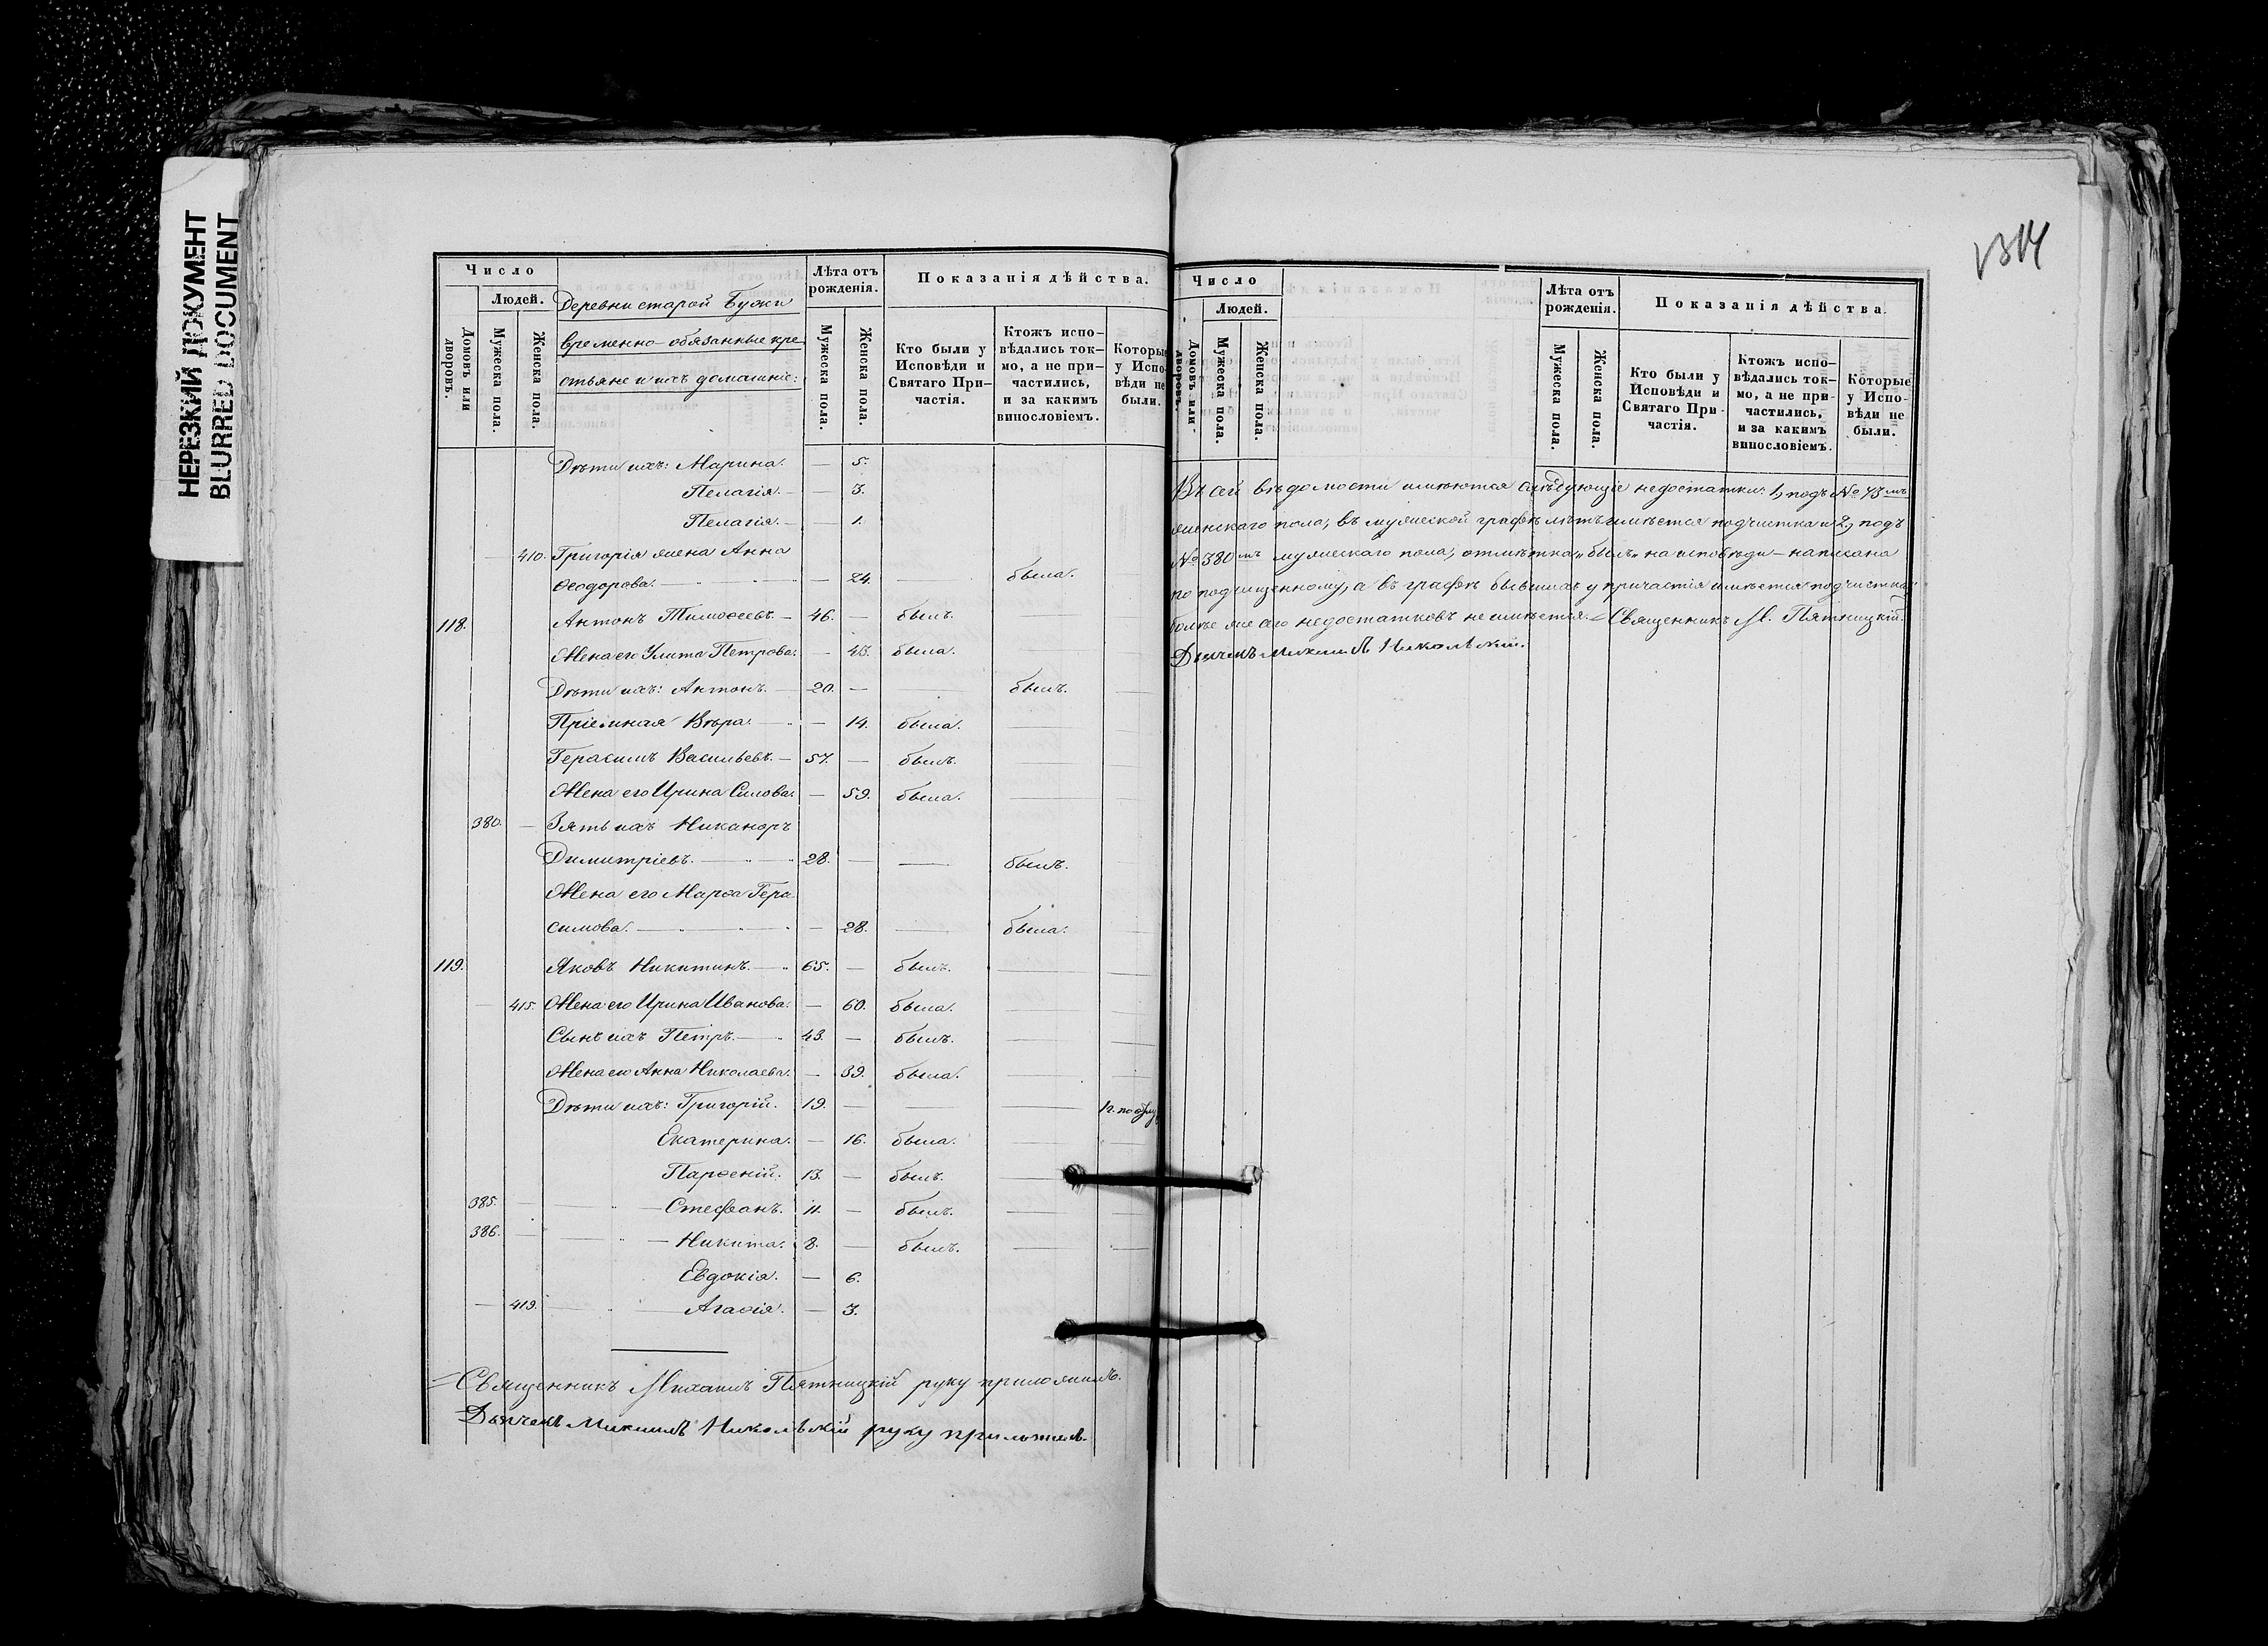 НЕРЕЗКИЙ ДОКУМЕНТ
BLURRED DOCUMENT
Число
Людей.
Домовъ или дворовъ.
Мужеска пола.
Женска пола.
Деревни старой
временно-обязанные кре
стьяне и ихъ домашніе:
Лѣта отъ рожденія.
Мужеска пола.
Женска пола.
Показанія дѣйства.
Кто были у Исповѣди и Святаго При-частія.
Ктожъ испо-вѣдались ток-мо, а не при-частились, и за какимъ винословіемъ.
Которые у Испо-вѣди не были.
Дѣти ихъ: Марина. — 5.
Пелагія. — — 3.
Пелагія. — — 1.
— 410. Григорія жена Анна
Ѳеодорова. — — 24. была.
118. Антонъ Тимоѳеевъ. — 46. — былъ. —
Жена его Улита Петрова. — 43. была. —
Дѣти ихъ: Антонъ. — 20. — — былъ. —
Пріемная Вѣра. — — 14. была. —
Герасимъ Васильевъ. — 57. — былъ. —
Жена его Ирина Силова. — 59. была. — —
380. — Зять ихъ Никаноръ
Димитріевъ. — 28. — — былъ.
Жена его Марѳа Гера
симова. — — 28. — была. —
119. Яковъ Никитинъ. — 65. — былъ. — —
— 415. Жена его Ирина Иванова. — 60. была. — —
Сынъ ихъ Петръ. — 43. — былъ. — —
Жена его Анна Николаева. — 39. была. — —
Дѣти ихъ: Григорій. 19. — — —
Екатерина. — 16. была. — —
Парѳеній. 13. — былъ. —
385. — — Стефанъ. 11. — былъ. — —
386. — — Никита. 8. — былъ. — —
Евдокія. — 6.
— 419. — Агаѳія. — 3.
Священникъ Михаилъ Пятницкій руку приложилъ.
Дьячекъ Никольскій руку приложилъ.
1314
Число
Людей.
Домовъ или дворовъ.
Мужеска пола.
Женска пола.
Лѣта отъ рожденія.
Мужеска пола.
Женска пола.
Показанія дѣйства.
Кто были у Исповѣди и Святаго При-частія.
Ктожъ испо-вѣдались ток-мо, а не при-частились, и за какимъ винословіемъ.
Которые у Испо-вѣди не были.
Въ сей вѣдомости имѣются слѣдующіе недостатки: 1, подъ № 43мъ
женскаго пола, въ мужеской графѣ лѣтъ имѣется подчистка и 2, подъ
№ 380мъ мужескаго пола, отмѣтка „былъ„ на исповѣди — написана
по подчищенному, а въ графѣ бывшихъ у причастія имѣется подчистка;
болѣе же сего недостатковъ не имѣется. Священникъ М. Пятницкій.
Дьячекъ Никольскій.